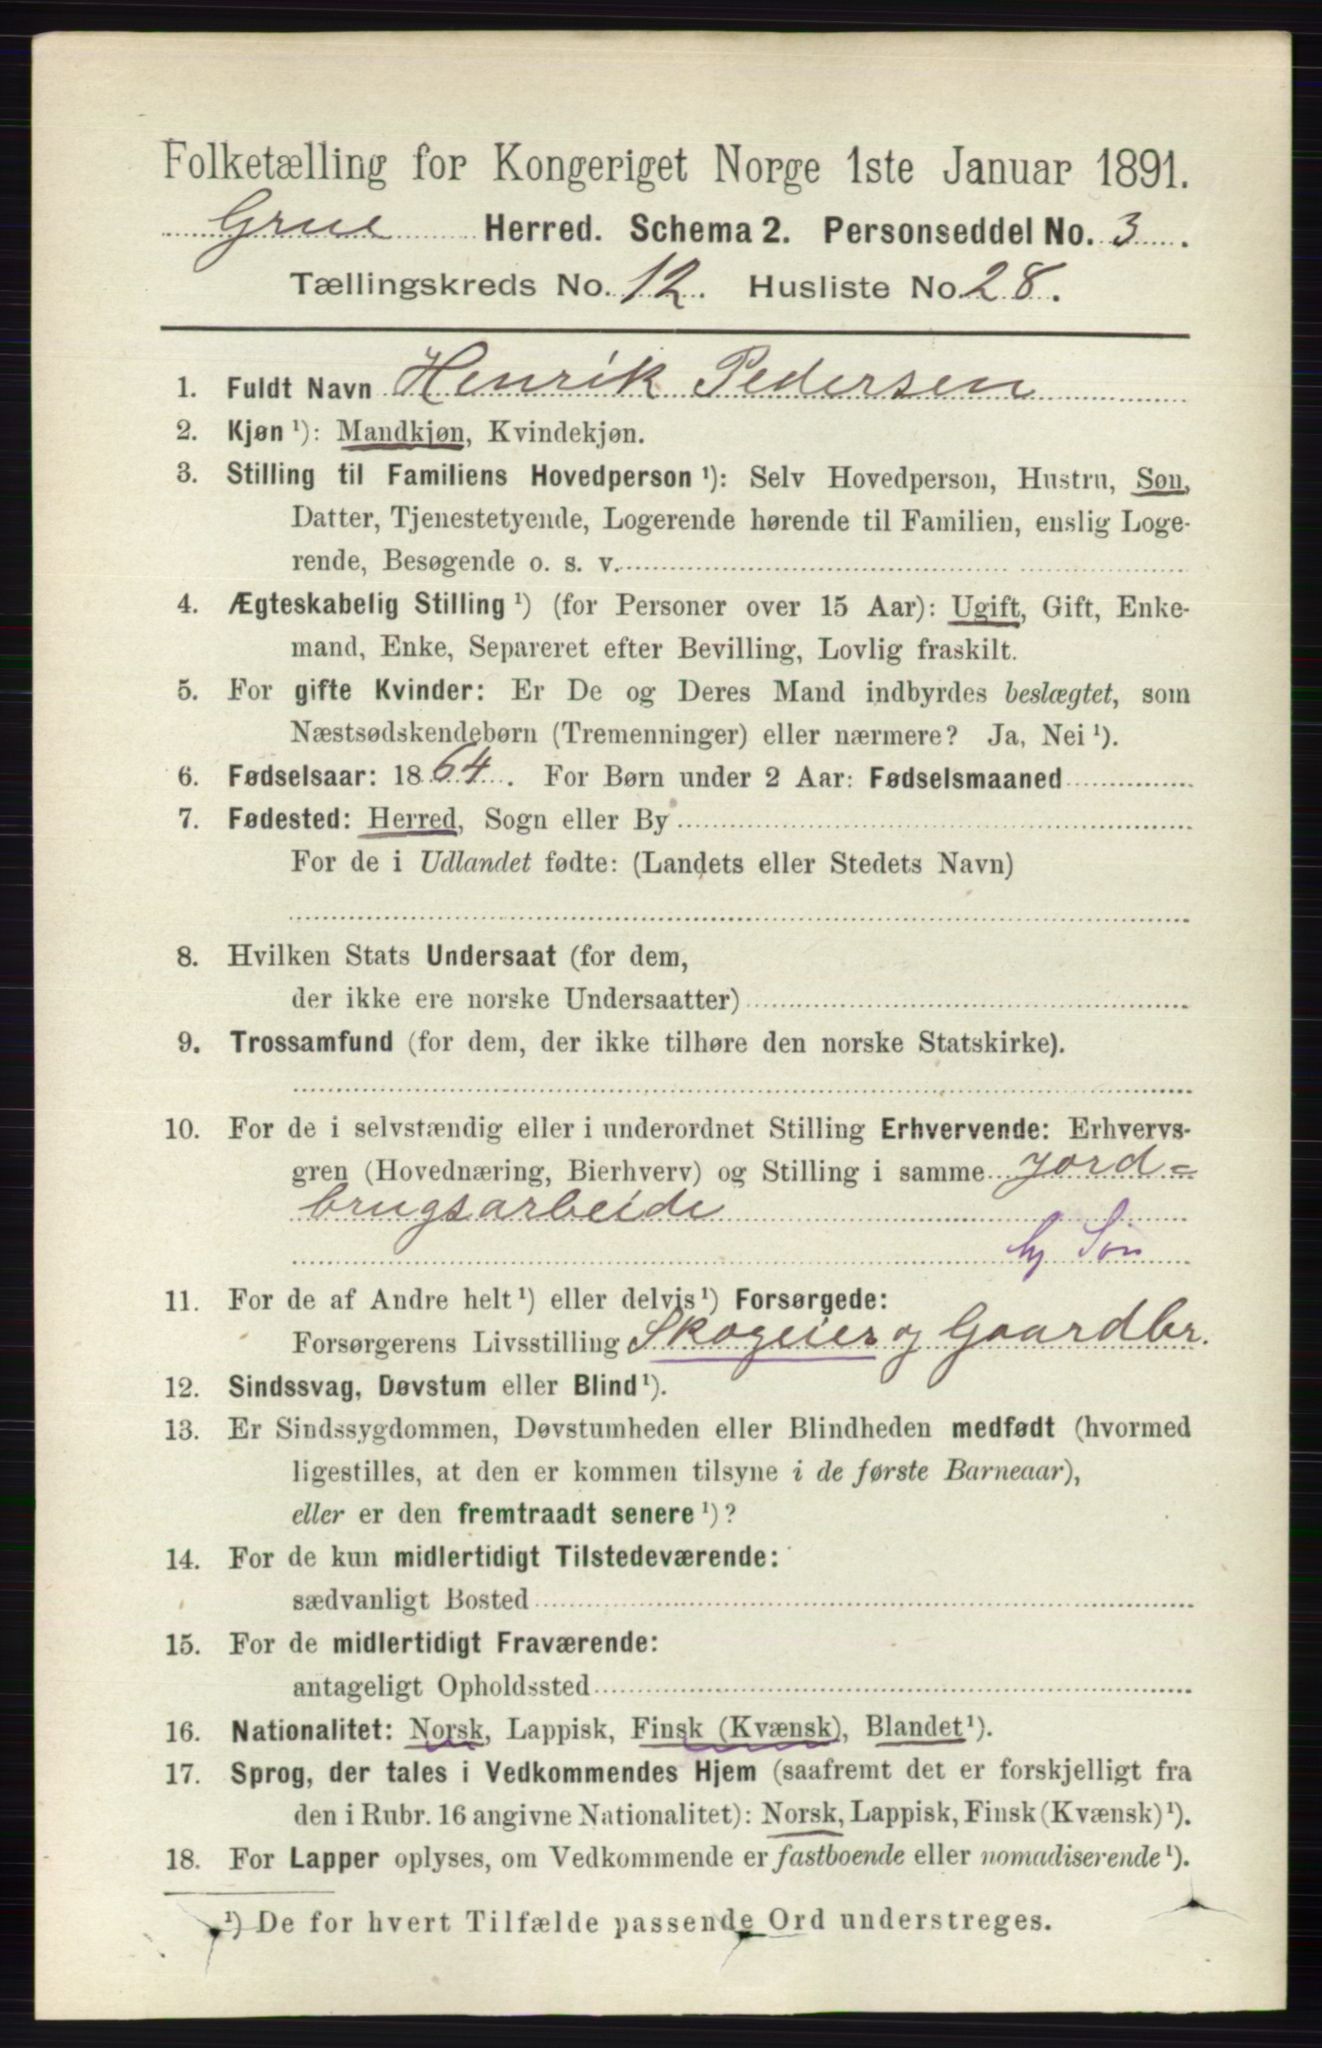 Folketælling for Kongeriget Norge 1ste Januar 1891.
Grue Herred. Schema 2. Personseddel No. 3.
Tællingskreds No. 12. Husliste No. 28.
1. Fuldt Navn Henrik Pedersen
2. Kjøn ¹): Mandkjøn, Kvindekjøn.
3. Stilling til Familiens Hovedperson ¹): Selv Hovedperson, Hustru, Søn,
Datter, Tjenestetyende, Logerende hørende til Familien, enslig Loge-
rende, Besøgende o. s. v.
4. Ægteskabelig Stilling ¹) (for Personer over 15 Aar): Ugift, Gift, Enke-
mand, Enke, Separeret efter Bevilling, Lovlig fraskilt.
5. For gifte Kvinder: Er De og Deres Mand indbyrdes beslægtet, som
Næstsødskendebørn (Tremenninger) eller nærmere? Ja, Nei ¹).
6. Fødselsaar: 1864. For Børn under 2 Aar: Fødselsmaaned
7. Fødested: Herred, Sogn eller By
For de i Udlandet fødte: (Landets eller Stedets Navn)
8. Hvilken Stats Undersaat (for dem,
der ikke ere norske Undersaatter)
9. Trossamfund (for dem, der ikke tilhøre den norske Statskirke).
10. For de i selvstændig eller i underordnet Stilling Erhvervende: Erhvervs-
gren (Hovednæring, Bierhverv) og Stilling i samme Jord=
brugsarbeide
Søn
11. For de af Andre helt ¹) eller delvis ¹) Forsørgede:
Forsørgerens Livsstilling Skogeier og Gaardbr.
12. Sindssvag, Døvstum eller Blind ¹).
13. Er Sindssygdommen, Døvstumheden eller Blindheden medfødt (hvormed
ligestilles, at den er kommen tilsyne i de første Barneaar),
eller er den fremtraadt senere ¹)?
14. For de kun midlertidigt Tilstedeværende:
sædvanligt Bosted
15. For de midlertidigt Fraværende:
antageligt Opholdssted
16. Nationalitet: Norsk, Lappisk, Finsk (Kvænsk), Blandet ¹).
17. Sprog, der tales i Vedkommendes Hjem (saafremt det er forskjelligt fra
den i Rubr. 16 angivne Nationalitet): Norsk, Lappisk, Finsk (Kvænsk) ¹).
18. For Lapper oplyses, om Vedkommende er fastboende eller nomadiserende ¹).
¹) De for hvert Tilfælde passende Ord understreges.